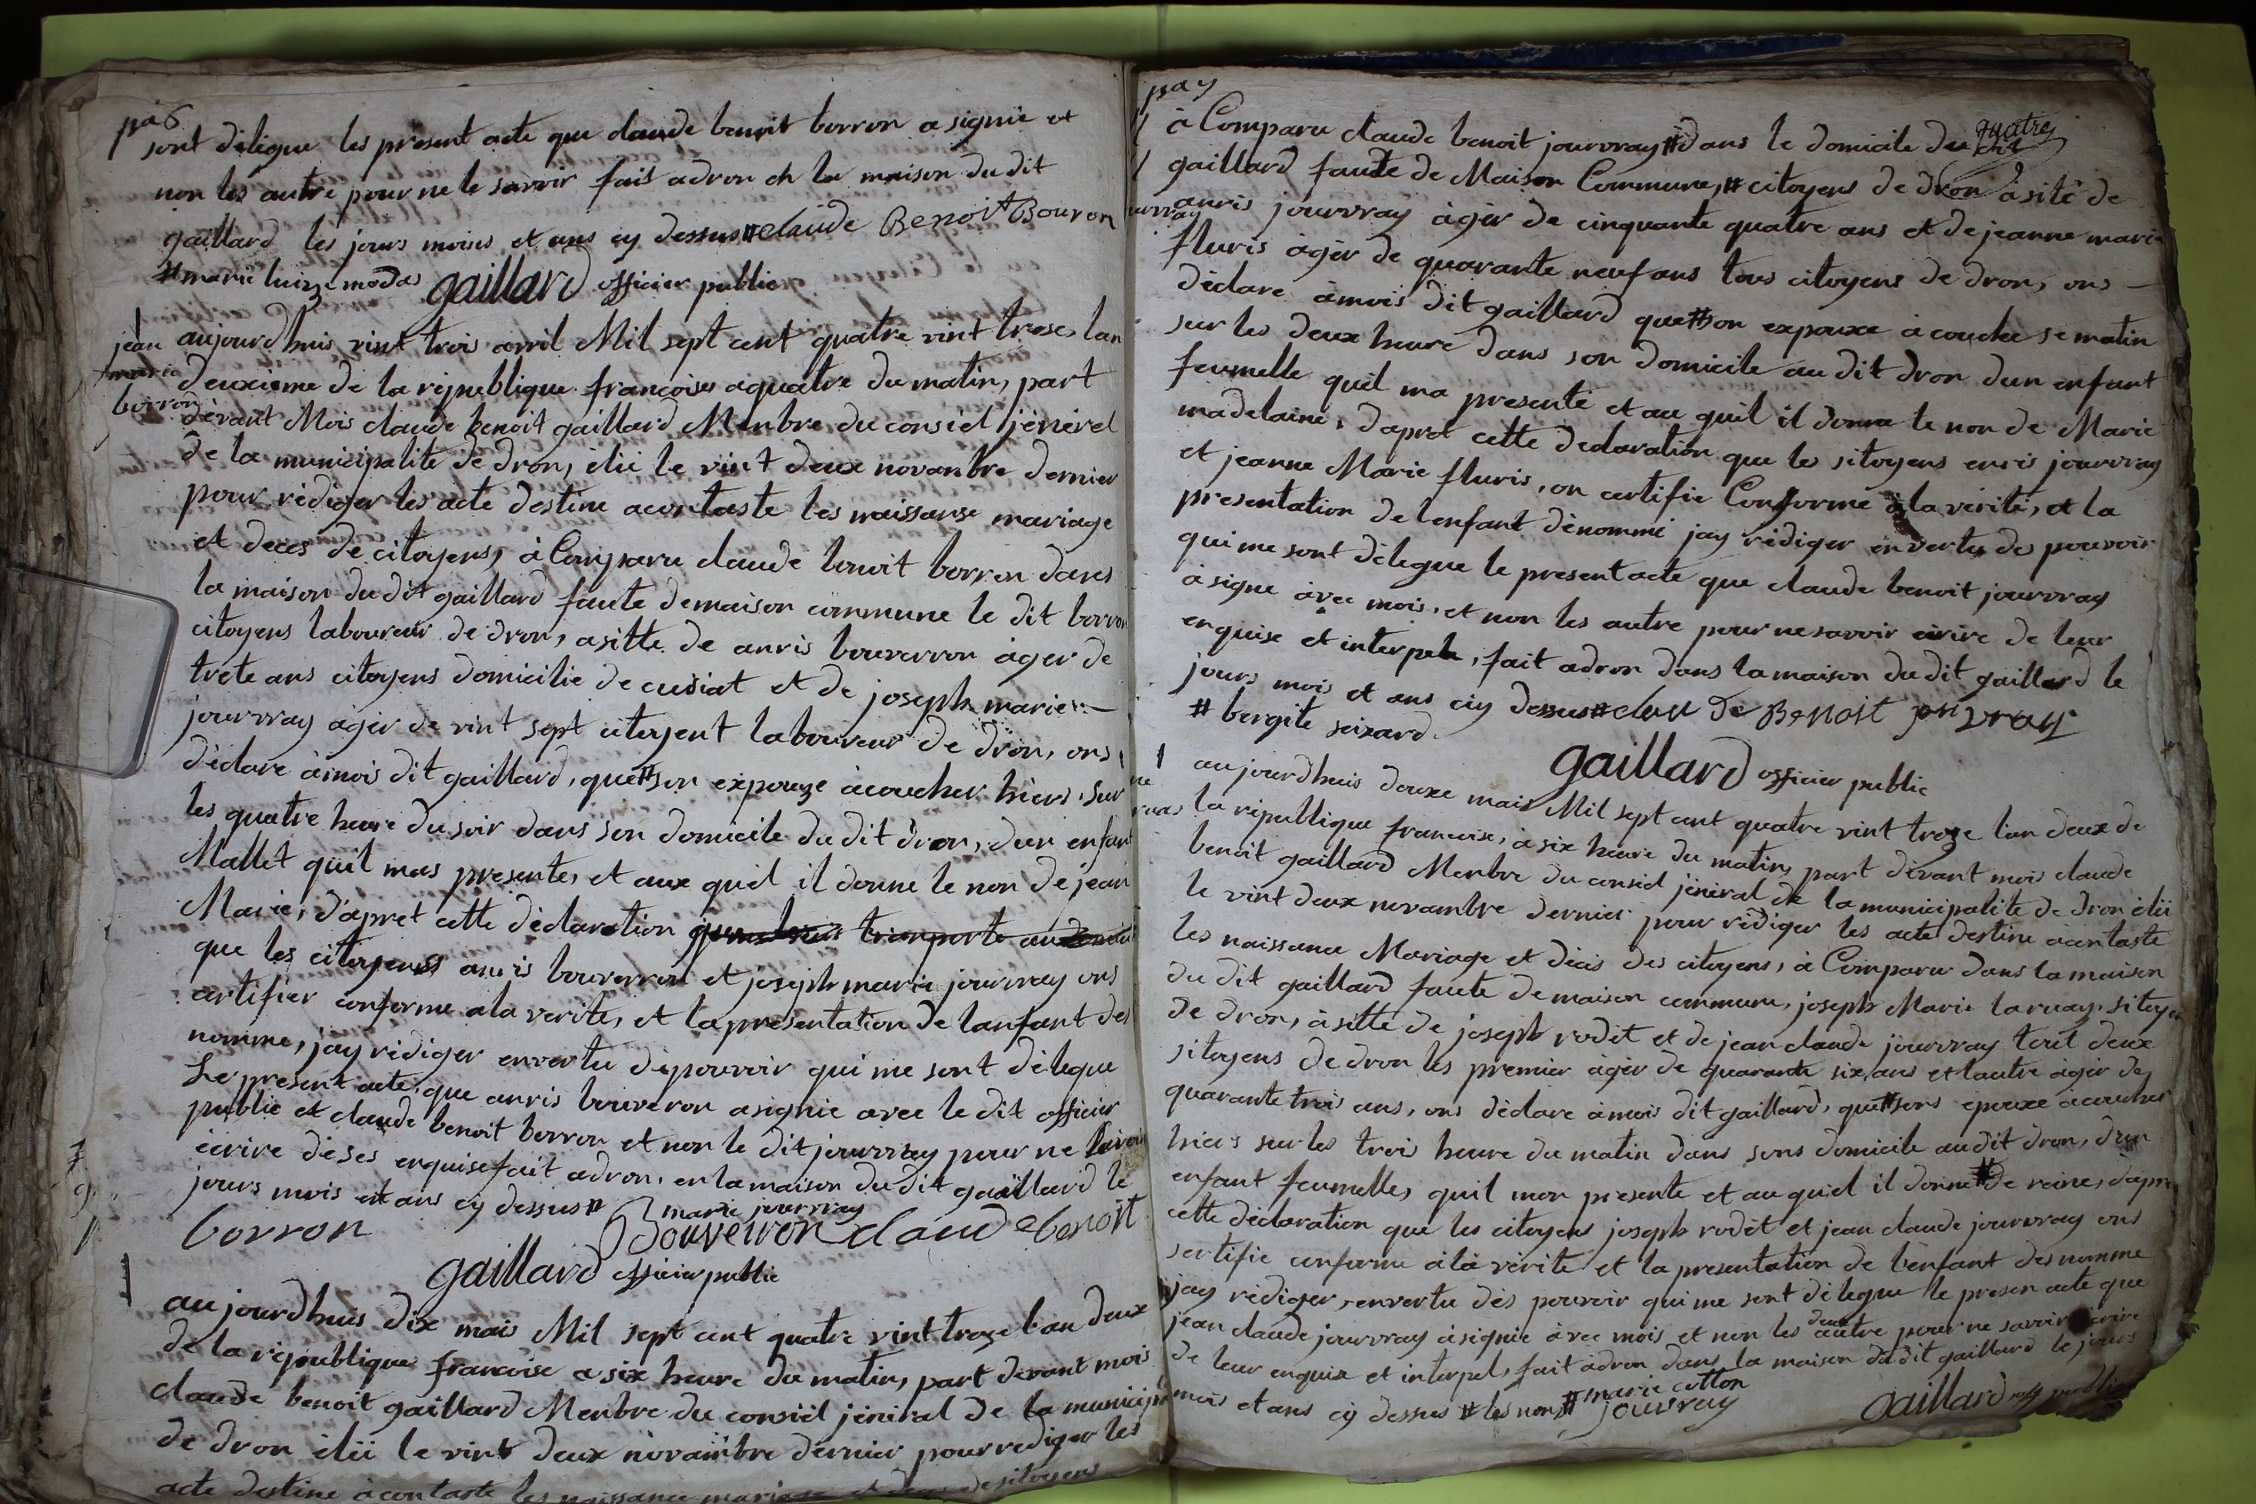 pa 6
sont délegue les present acte que claude benoit borron a signié et
non les autre pour ne le savoir fait adron en la maison du dit
gaillard les jours moius et ans cy dessus # claude Benoit Bouron
# marie luize modas gaillard officier public
jean marie borron
aujourdhuis vint trois avril Mil sept cent quatre vint trese, lan
deuxieme de la république françoises aquatre du matin, part
dévant Mois claude benoit gaillard Menbre du consiél jénérel
de la municipalite de dron, élii le vint deux novanbre dernier
pour rédiger les acte destine acontaste les naissanse mariage
et deces de citoyens, à Conparu claude benoit borron dans
la maison du dit gaillard faute demaison commune le dit borron
citoyens laboureur de dron, asitte de anris bouverron àger de
trete ans citoyens domicilie de cusiat et de joseph marie
jourvray àgér de vint sept citoyent laboureur de dron, ons
déclare àmois dit gaillard, que # son expouze àcoucher hiers, sur
les quatre heure du soir dans son domicile du dit dron, dun enfant
Mallet quil mas presente, et aux quel il donne le non de jean
Marie, d'apret cette déclaration transporte au
que les citoyenss anris bouverron et joseph marie jourvray ons
certifier conforme ala verite, et la présentation de lanfant des
nomme, jay rédiger envertu de pouvoir qui me sont délegue
Le present acte, que anris bouveron asignie avec le dit officier
public et claude benoit borron et non le dit jourvray pour ne savoir
écrire dé ses enquise fait adron, en la maison du dit gaillard le
jours mois et ans cy dessus # marie jourvray
borron Bouveiron claude benoit
gaillard officier public
aujourdhuis dix mais Mil sept cent quatre vint troze l'an deux
de la république francoise a six heure du matin, part devant mois
claude benoit gaillard Menbre du consiél jéniral de la municip
de dron élii le vint deux novanbre dérnier pour rediger les
acte destine àcontaste les naissance mariage et deces de sitoyens
pa 7
à Comparu claude benoit jourvray # dans le domicile du dit quatres
gaillard faute de Maison Commune, # citoyens de dron à sité de
anris jourvray àgér de cinquante quatre ans et de jeanne marie
fluris àgér de quarante neuf ans tous citoyens de dron, ons
déclare àmois dit gaillard que # son expouxe à couche se matin
sur les deux heure dans son domicile au dit dron dun enfant
feumelle quil ma presenté et au quil il donna le non de Marie
madelaine, d'apret cette declaration que les sitoyens enris jourvray
et jeanne Marie fluris, on certifie Conforme à la vérité, et la
presentation de lenfant dénommé jay rédiger envertu des pouvoir
qui me sont délegue le present acte que claude benoit jourvray
à signe àvec mois, et non les autre pour ne savoir écrire de leur
enquise et interpele, fait adron dans la maison du dit gaillard le
jours mois et ans ciy dessus # clau de Benoit jouvray
# bergite seixard
gaillard officier public
aujourdhuis douxe mais Mil sept cent quatre vint troze l'an deux de
la république francoise, à six heure du matin, part dévant mois claude
benoit gaillard Menbre du consiel jéniral de la municipalite de dron élii
le vint deux novambre dernier pour rédiger les acte destine àcontaste
les naissance Mariage et décis des citoyens, à Comparu dans la maison
du dit gaillard faute demaison commune, joseph Marie laruay, sitoyen
de dron, àsitté de joseph rodet et de jean claude jourvray tout deux
sitoyens de dron les premier àgér de quarante six ans et lautre àgér de
quarante trois ans, ons déclare àmois dit gaillard, que # sons epouxe àcoucher
hiers sur les trois heure du matin dans sons domicile au dit dron, dun
enfant feumelle, quil mon presente et au quel il donne # de reine, dapre
cette déclaration que les citoyens joseph rodet et jean claude jourvray ons
sertifie conforme àla vérite et la presentation de lénfant desnomme
jay rédiger, envertu dés pouvoir qui me sont délegue le presen acte que
jean claude jourvray àsignie àvec mois et non les deux autre pour ne savoir écrire
de leur enquise et interpel, fait àdron dans la maison du dit gaillard le jours
mois et ans cy dessus # les non # marie cotton
jouvray gaillard off public